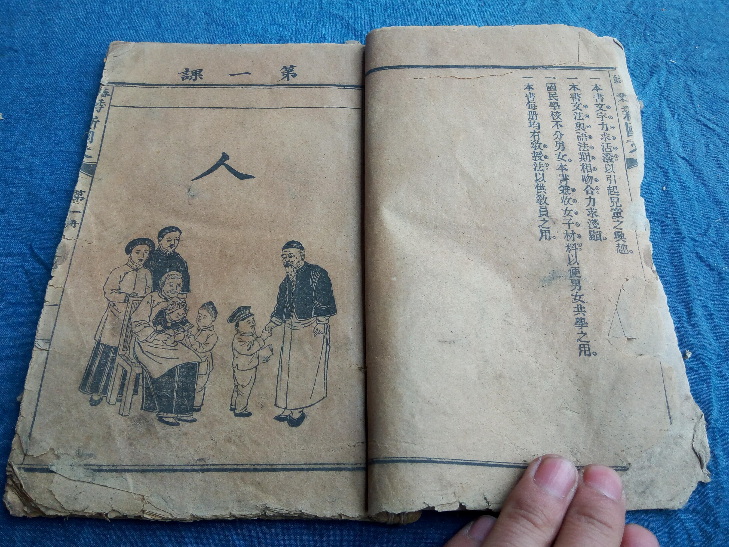 一本書文字力求活潑以引起兒童之興趣。
一本書文法與語法期相吻合力求淺顯。
一國民學校不分男女。本書兼收女子材料以便男女共學之用。
一本書每册均有教授法以供教員之用。
第一課
人
第一册